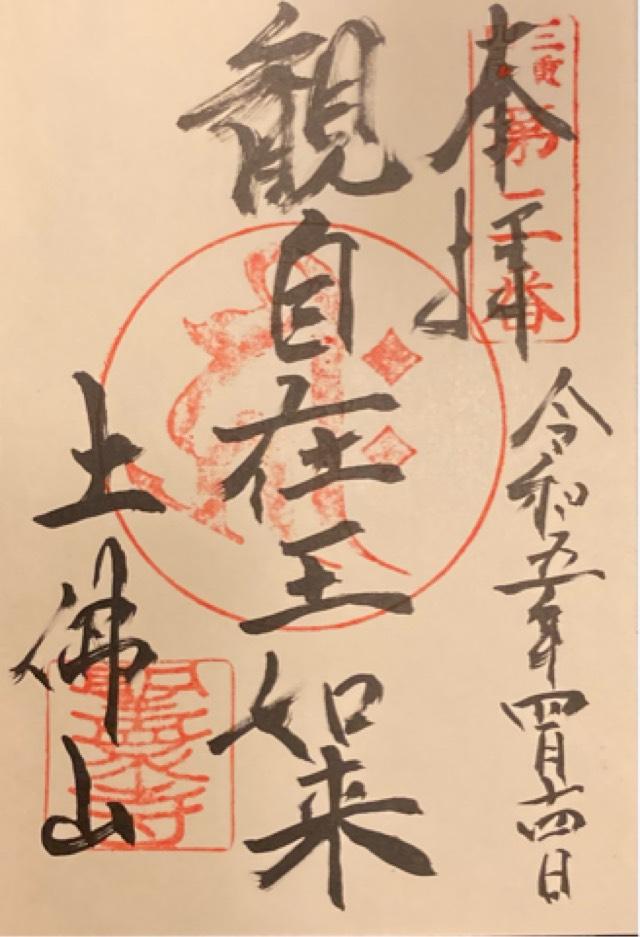 三重
第二番
奉拝
令和五年四月十四日
観自在王如来
土佛山
聖衆寺